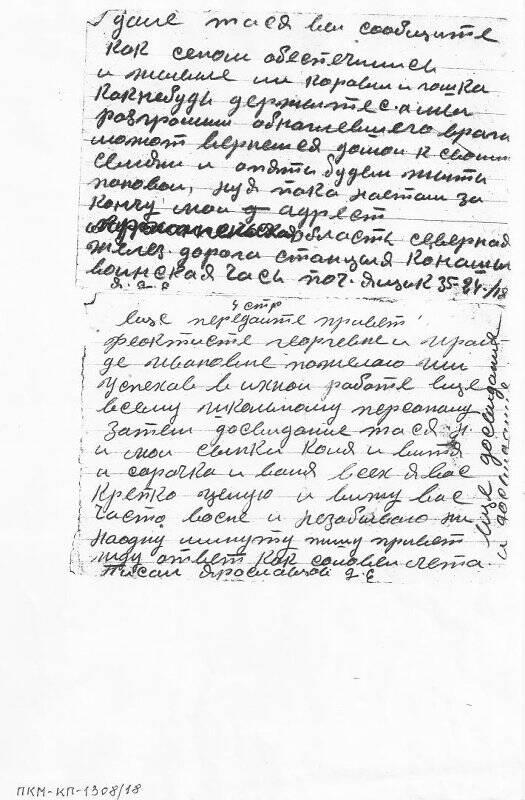 далие тася вы сообщите
как сеном обеспечились
и живые ли корови и лошка
какнебудь держитес. а мы
разгромим обнаглевшего врага
может вернемся домой к своим
семьям и опять будем жить
поновои, нуд пока
кончу мои адрест
область северная
желез. дорога станция Конашы
воинская часть поч. ящик 35-24/18
я. г. е
4 стр
еще передайте привет
феоктисте георгевне и ираи
де ивановне пожелаю им
успехав в ихнои работе еще
всему школьному персоналу
затем досвидание тася
и мои синки коля и витя
и сорочка и ваня всех я вас
крепко целую и вижу вас
часто восне и незабываю ни
наодну минуту пишу привет
жду ответ как соловеи лета
писал Ярославцов г. Е
еще досвидания
и
ПКМ-КП-1308/18